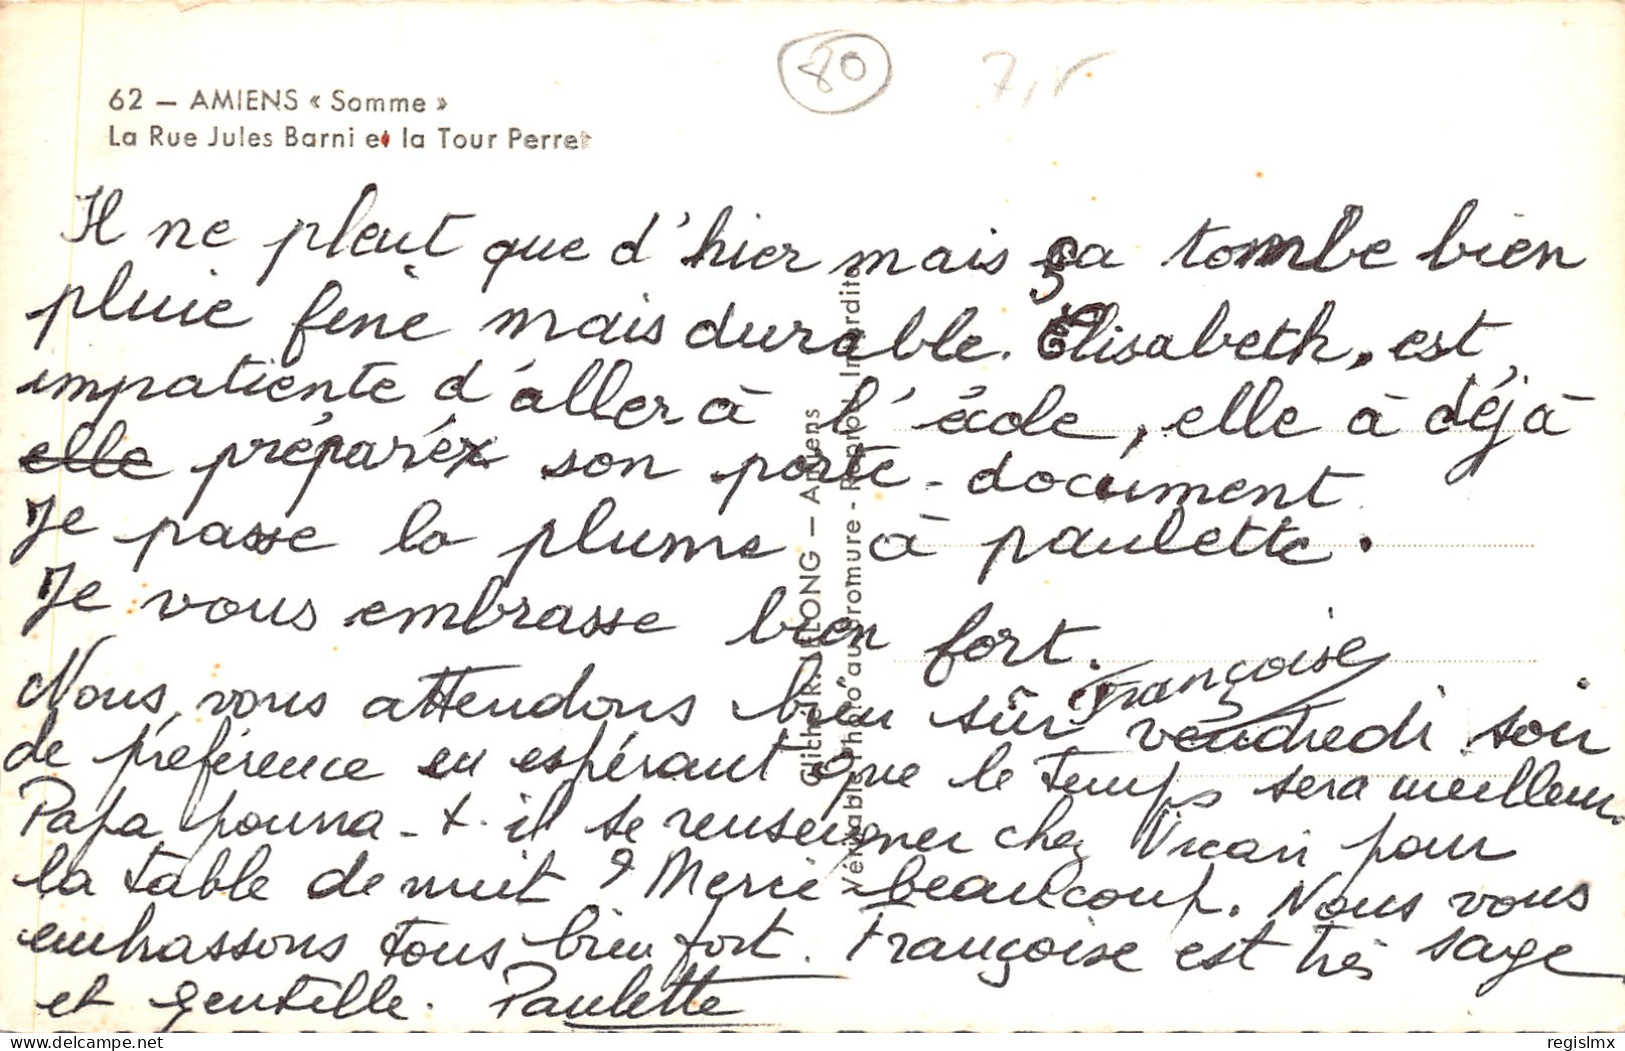 80
62 — AMIENS « Somme »
La Rue Jules Barni et la Tour Perret
Il ne pleut que d'hier mais ça tombe bien
pluie fine mais durable. Elisabeth, est
impatiente d'aller à l'école, elle à déjà
elle préparéx son porte-document
Je passe la plume à paulette.
Je vous embrasse bien fort.
Françoise
Nous vous attendons bien sûr vendredi soir
de préférence en espérant que le temps sera meilleur.
Papa pourra-t-il se renseigner chez Vicari pour
la table de nuit ? Merci beaucoup. Nous vous
embrassons tous bien fort. Françoise est très sage
et gentille. Paulette
Cliché R. LELONG — Amiens
Véritable Photo "au bromure - Reprod. Interdite
delcampe.net
regislmx